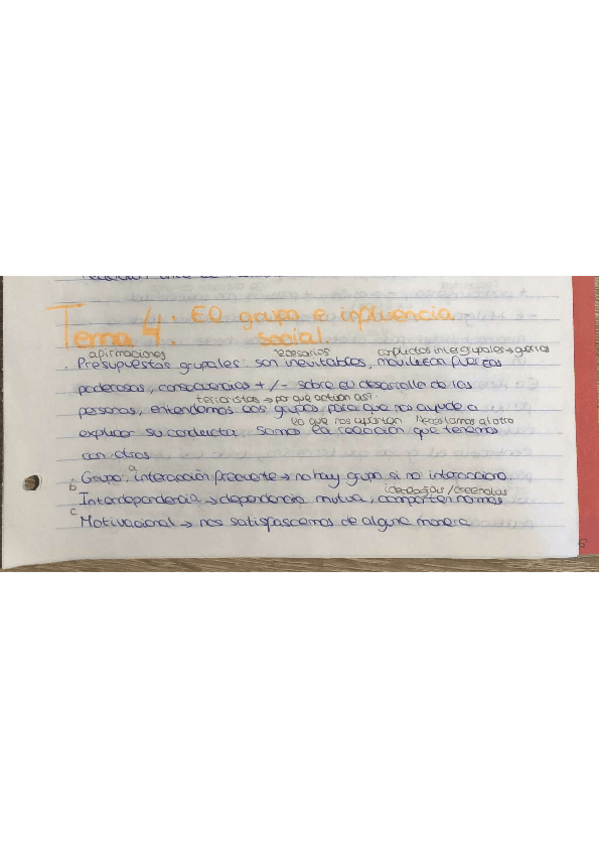 Tema 4: El grupo e influencia
social.
afirmaciones necesarios conflictos intergrupales → guerras
. Presupuestos grupales: son inevitables, movilizan fuerzas
poderosas, consecuencias +/- sobre el desarrollo de las
terroristas → por que actuan así.
personas, entendemos los grupos para que nos ayude a
lo que nos aportan Necesitamos al otro
explicar su conducta. Somos la relación que tenemos
con otros
. Grupo: a interacción frecuente → no hay grupo si no interacciona.
b ideologías/creencias
Interdependencia → dependencia mutua, comparten normas
c
Motivacional → nos satisfascemos de alguna manera